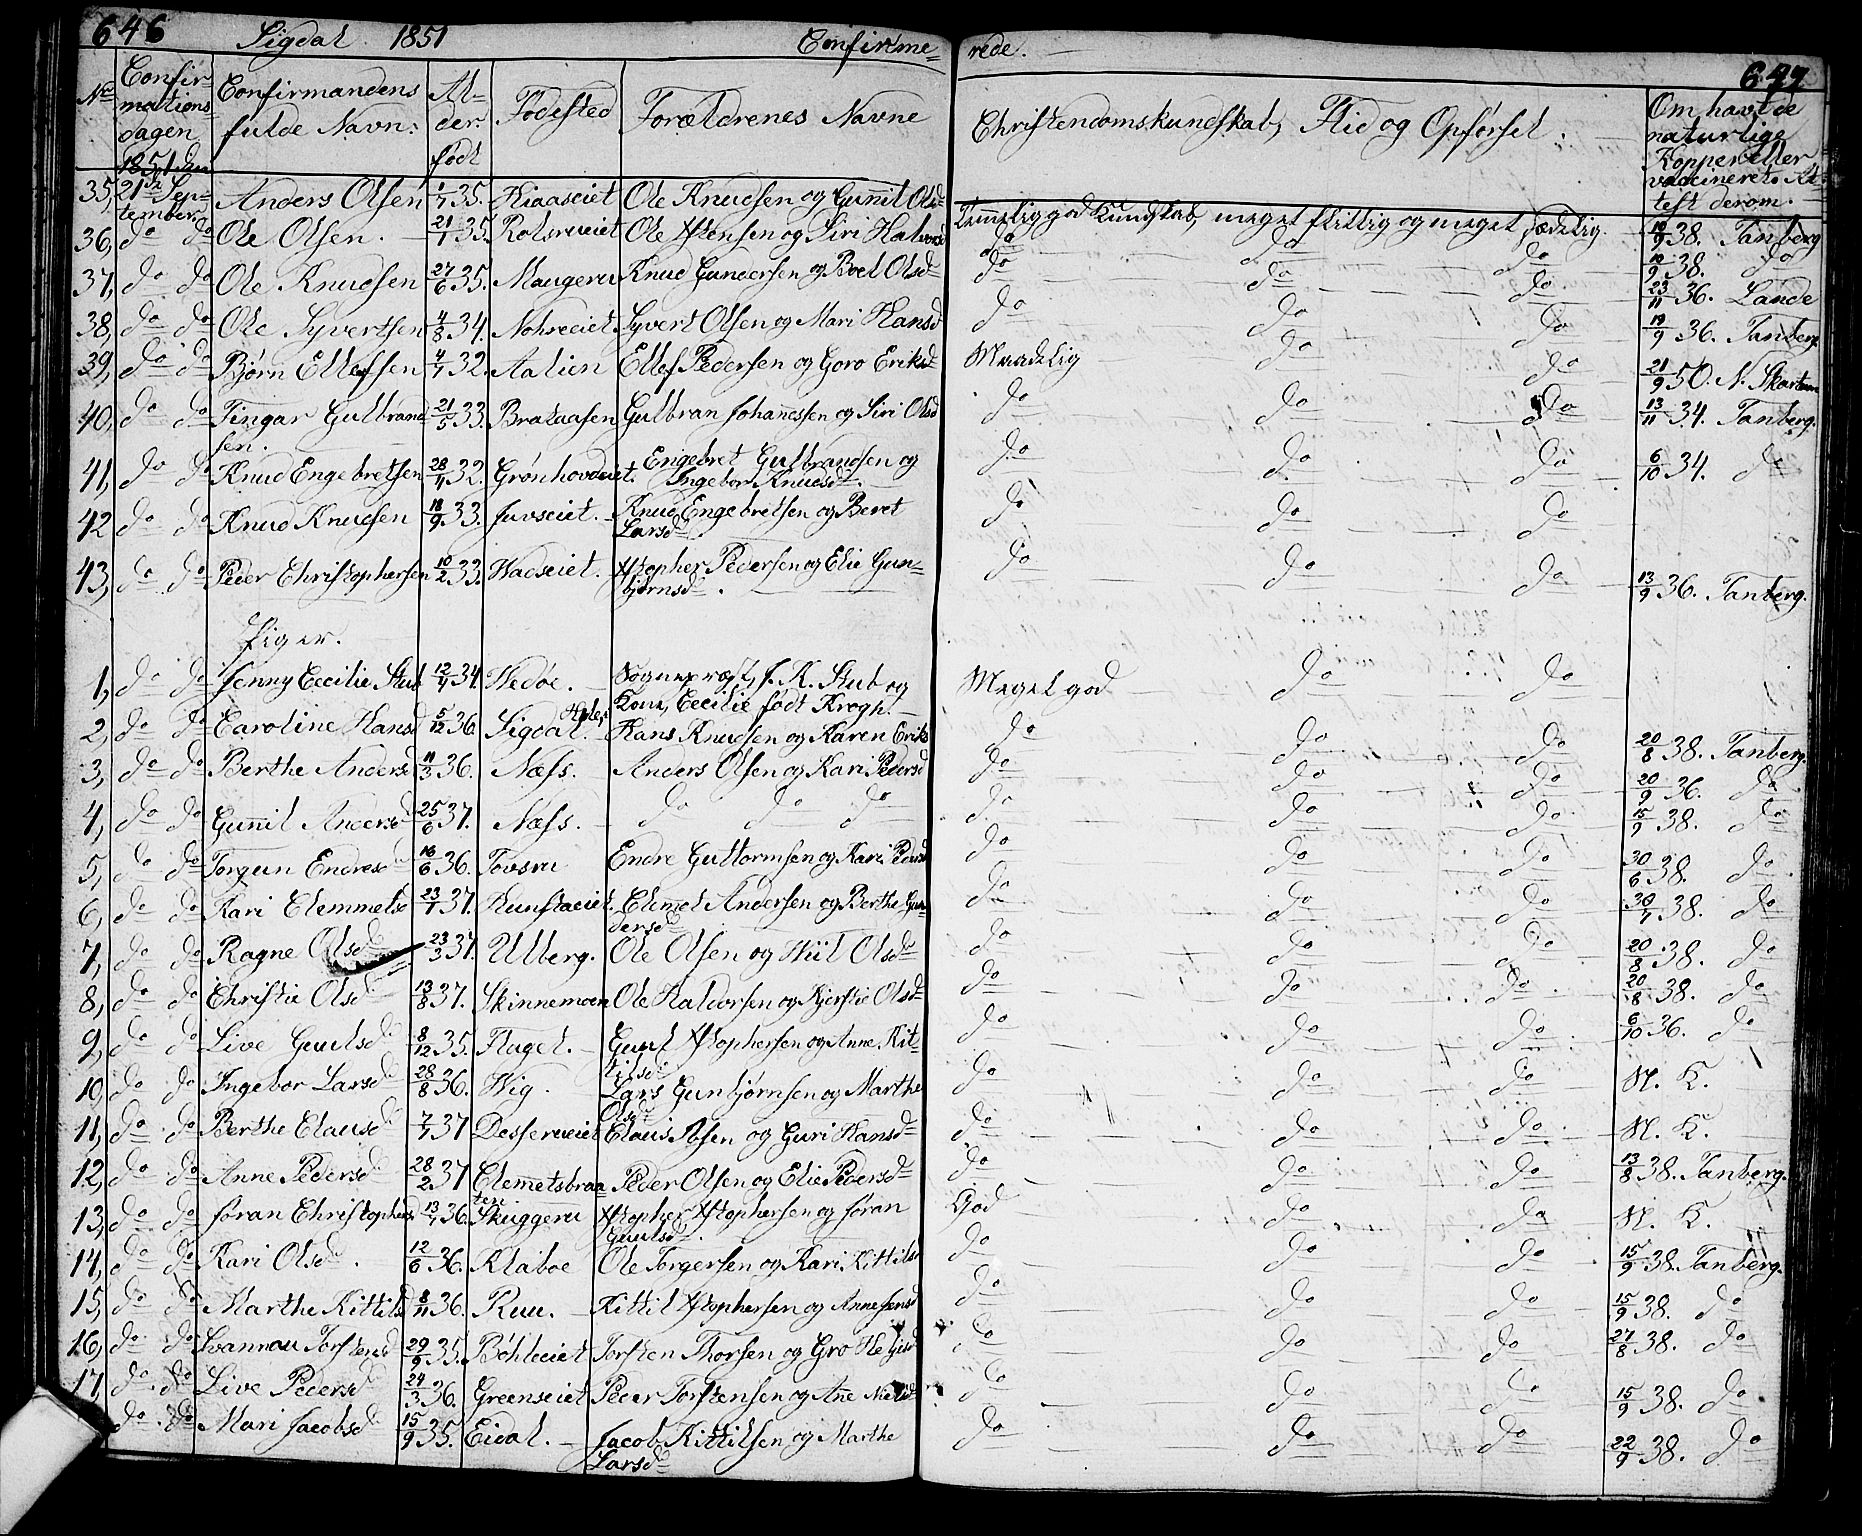 646 Sigdal 1851 Confirme= rede. 647
No Confir mations dagen Confirmandens fulde Navn: Al= der. født Fødested Forældrenes Navne Christendomskundskab, Flid og Opførsel: Om havt de naturlige Kopper eller vaccineret. At= test derom.
1851 den
35, 21de Sep= tember Anders Olsen 1/7 35. Kiaaseiet Ole Knudsen og Gunnil Olsd Temelig god Kundskab, meget flittig og meget sædelig. 19/9 38. Tanberg
36, do do Ole Olsen. 21/7 35. Rolsrueiet Ole Stensen og Siri Halvorsd do do do 19/9 38. do
37, do do Ole Knudsen 27/6 35. Maugeru Knud Gundersen og Boel Olsd do do do 23/11 36. Lande
38, do do Ole Syvertsen 4/8 34. Nohreeiet Syvert Olsen og Mari Hansd do do do 19/9 36. Tanberg
39, do do Bjørn Ellefsen 4/7 32. Aalien Ellef Pedersen og Goro Eriksd Maadelig do do 21/9 50. N. Skartum
40, do do Tingar Gulbrand sen. 21/5 33. Brataasen Gulbran Johanesen og Siri Olsd do do do 13/11 34. Tanberg.
41, do do Knud Engebretsen 28/4 32. Grønhovdeiet. Engebret Gulbrandsen og Ingebor Knudsd. do do do 6/10 34. do
42 do do Knud Knudsen 18/9 33. Juvseiet. Knud Engebretsen og Beret Larsd do do do
43, do do Peder Christophersen 10/2 33. Hadseiet. Xstopher Pedersen og Elie Gun= bjørnsd. do do do 13/9 36. Tanberg.
Piger.
1, do do Jenny Cecilie Stub 12/4 34. Hedøe. Sogneprest, J. K. Stub og Kone, Cecilie født Krogh. Meget god do do
2, do do Caroline Hansd 5/12 36. Sigdal. Hans Knudsen og Karen Eriks do do do 20/8 38. Tanberg.
3, do do Berthe Andersd 11/3 36. Næss. Anders Olsen og Kari Pedersd do do do 20/9 36. do
4, do do Gunnil Andersd 25/6 37. Næss. do do do do do do 15/9 38. do
5, do do Torgun Endresd 16/6 36. Tovsru Endre Guttormsen og Kari Pedersd do do do 30/6 38. do
6, do do Kari Clemmetsd 23/1 37. Kunstaeiet. Clemet Andersen og Berthe Gun= dersd do do do 30/7 38. do
7, do do Ragne Olsd 23/3 37. Ulberg. Ole Olsen og Hiil Olsd do do do 20/8 38. do
8, do do Christie Olsd 13/8 37. Skinnemoen Ole Halvorsen og Kjerstie Olsd do do do 20/8 38. do
9, do do Live Guulsd 8/12 35. Flaget. Guul Xstophersen og Anne Kit= tilsd do do do 6/10 36. do
10, do do Ingebor Larsd 28/8 36. Wig. Lars Gunbjørnsen og Marthe Olsd do do do N. K.
11, do do Berthe Clausd 7/7 37 Desserueiet Claus Ansen og Guri Hansd do do do N. K.
12, do do Anne Pedersd 28/2 37 Clemetsbraa ten Peder Olsen og Elie Pedersd do do do 13/8 38. Tanberg.
13, do do Jøran Christophersd 13/7 36. Skuggeru Xstopher Xstophersen og Jøran Guulsd. God do do N. K.
14, do do Kari Olsd. 12/6 36. Klaboe Ole Torgersen og Kari Kittilsd do do do 15/9 38. Tanberg.
15, do do Marthe Kittilsd 8/11 36. Ruu. Kittil Xstophersen og Anne Jensd do do do 15/9 38. do
16, do do Svannau Torstensd 29/9 35. Böhleeiet Torsten Thorsen og Gro Helgisd do do do 27/8 38. do
17, do do Live Pedersd 24/3 36. Greenseiet Peder Torstensen og Ane Nielsd do do do 15/9 38. do
do do Mari Jacobsd 15/9 35. Eidal. Jacob Kittilsen og Marthe Larsd do do do 22/9 38. do